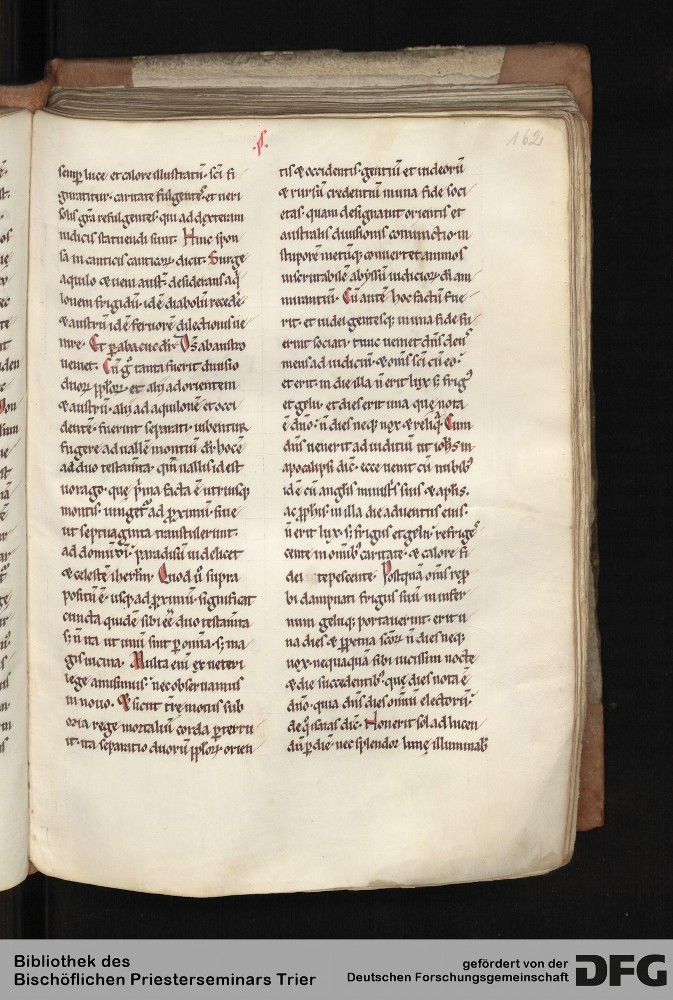 .s.
162
semp luce et calore illustratū. sci fi
guratitur. caritate fulgentes. et ueri
solis grā refulgentes. qui ad dexteram
iudicis statuendi sunt. Hinc spon
sa in canticis canticoꝝ dicit. Surge
aquilo & ueni aust. desiderans aq
lonem frigidū. id ē diabolū recede
& austrū id ē feruorē dilectionis ue
nire. Et p abacuc dr̄. Ds ab austro
ueniet. Cū g tanta fuerit diuisio
duoꝝ pploꝝ. et alij ad orientem
& austrū. alij ad aquilonē et occi
dentē. fuerint separati. iubentur
fugere ad uallē montiū dī. hoc ē
ad duo testamta. qm uallis id est
uorago. que pma facta ē utriusq
montis. iungetʼ ad pximū. siue
ut septuaginta transtulerunt.
ad domū. paradisū uidelicet
& celestē ihrlm. Quod u supra
positū ē. usq ad pximū. significat
cuncta quidē sibi eē duo testamta
s; n̄ ita ut unū sint p omnia. s; ma
gis uicina. Multa enī ex ueteri
lege amisimus. nec obseruamus
in nouo. & sicut tre motus sub
ozia rege mortaliū corda pterru
it. ita separatio duorū pploꝝ. orien
tis & occidentis. gentiū et iudeorū
& rursū credentiū in una fide soci
etas. quam designant orientis et
australis diuisionis coniunctio. in
stuporē metūq conuertet animos
inscrutabilē abyssū iudicioꝝ dī am
mirantiū. Cū autē hoc factū fue
rit. et iudei gentesq; in una fide fu
erint sociati. tunc ueniet dns deus
meus ad iudiciū. & oms sci cū eo.
et erit. in die illa n̄ erit lux s; frigʼ
et gelu. et dies erit una. que nota
ē dno. n̄ dies neq nox. & reliq. Cum
dns uenerit ad iuditiū ut iohs in
apocalipsi dic. ecce uenit cū nubibʼ
id ē cū anglis ministris suis & aplis.
ac pphis. in illa die aduentus eius.
n̄ erit lux. s; frigus et gelu. refrige
scente in omibʼ caritate. & calore fi
dei tepescente. Postquā oms rep
bi dampnati frigus suū in infer
num geluq; portauerint. erit u
na dies & ppetua scoꝝ. n̄ dies neq;
nox. nequaquā sibi uicissim nocte
& die succedentibʼ. que dies nota ē
dno. qua dns dies omiū electorū.
de q isaias dic. Non erit sol ad lucen
dū p diē. nec splendor lune illuminabʼ
Bibliothek des
Bischöflichen Priesterseminars Trier
gefördert von der
Deutschen Forschungsgemeinschaft
DFG